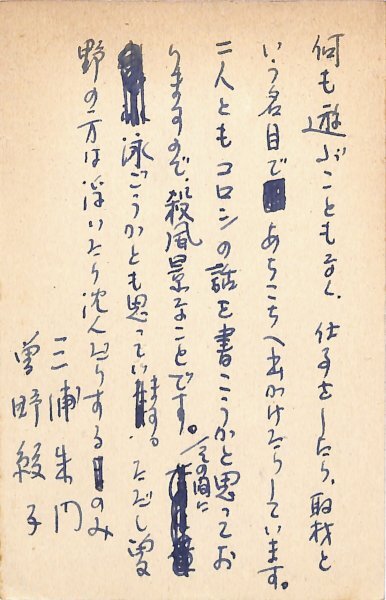 何も遊ぶこともなく、仕事をしたり、取材と
いう名目で あちこちへ出かけたりしています。
二人ともコロシの話を書こうかと思ってお
りますので、殺風景なことです。その間に
泳ごうかとも思っています。ただし曽
野の方は浮いたり沈んだりするのみ
三浦朱門
曽野綾子